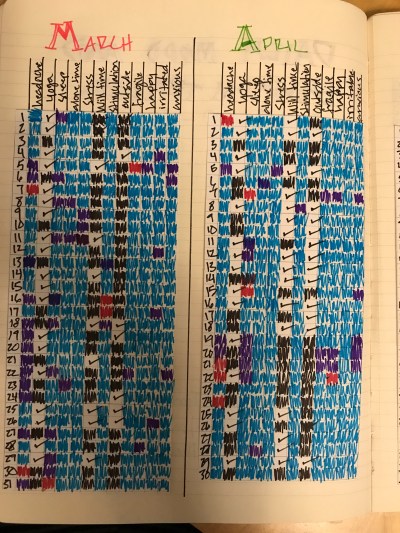 MARCH
headache
yoga
sleep
alone time
stress
will time
stimulation
outside
fragile
happy
irritated
anxious
1
2
3
4
5
6
7
8
9
10
11
12
13
14
15
16
17
18
19
20
21
22
23
24
25
26
27
28
29
30
31
APRIL
headache
yoga
sleep
alone time
stress
will time
stimulation
outside
fragile
happy
irritated
anxious
1
2
3
4
5
6
7
8
9
10
11
12
13
14
15
16
17
18
19
20
21
22
23
24
25
26
27
28
29
30